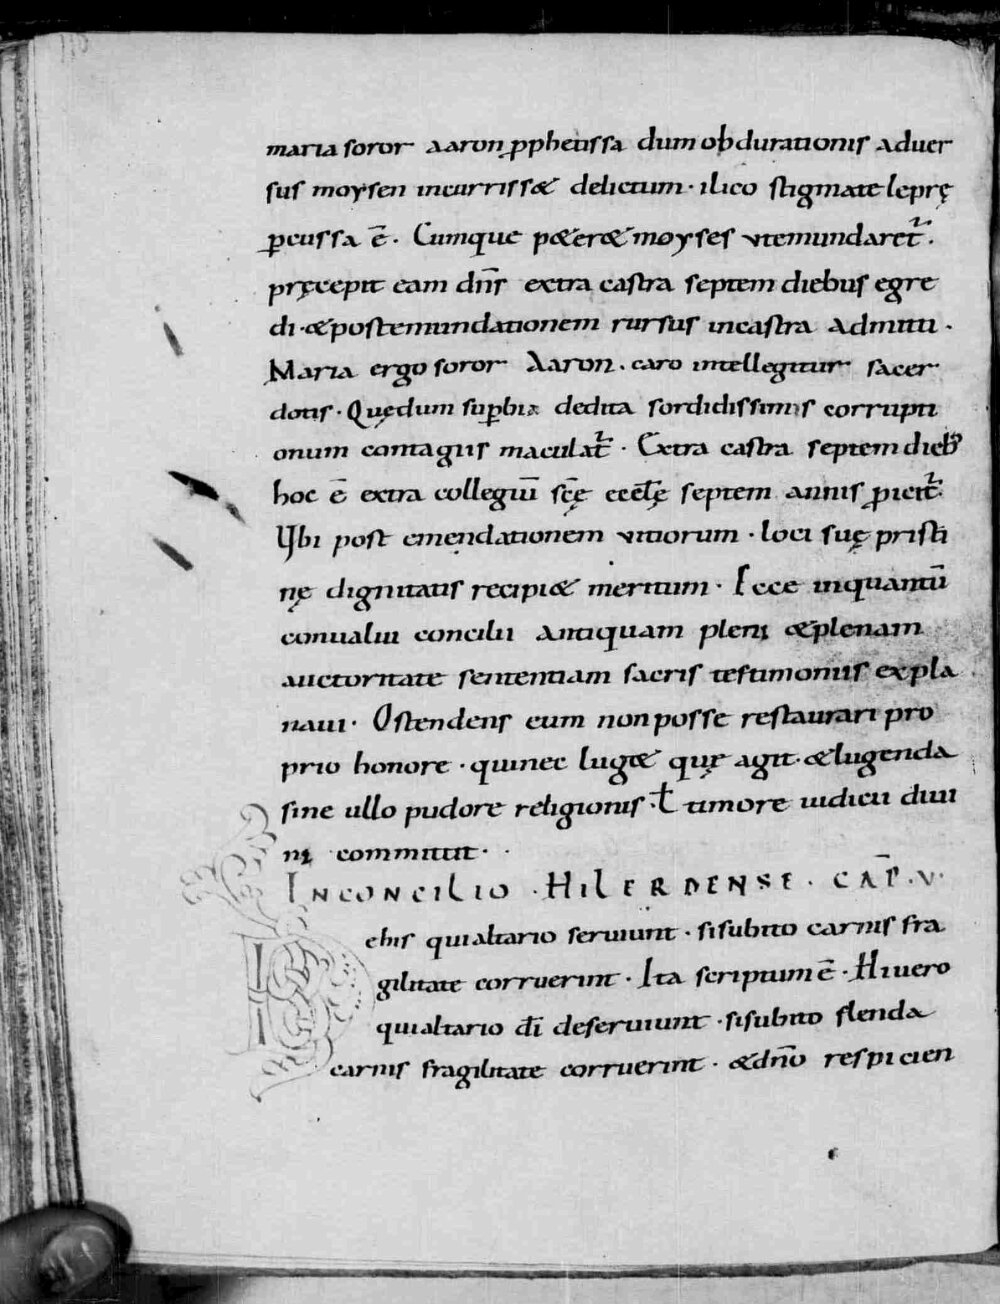 maria soror aaron ꝓphetissa dum obdurationis aduer
sus moysen incurrisset delictum · ilico stigmate leprę
ꝑcussa ē · Cumque peteret moyses vtemundaret᷑ ·
pręcepit eam dn̄s extra castra septem diebus egre
di · & postemundationem rursus incastra admitti ·
Maria ergo soror Aaron · caro intellegitur sacer
dotis · Quędum suꝑbia dedita sordidissimis corrupti
onum contagiis maculat᷑ · Extra castra septem dieb᷒
hoc ē extra collegiū sc̄ę eccl̄ę septem annis ꝓicit᷑
Vbi post emendationem vitiorum · loci suę pristi
nę dignitatis recipi& meritum · Ecce inquantū
conualui concilii antiquam pleni & plenam
auctoritate sententiam sacris testimoniis expla
naui · Ostendens eum non posse restaurari pro
prio honore · quinec lug& quę agit · & lugenda
sine ullo pudore religionis · ł timore iudicii diui
ni committit ·
IN CONCILIO · HILERDENSE · CAP̄ · V ·
De his quialtario seruiunt · sisubito carnis fra
gilitate corruerint · Ita scriptum ē · Hi uero
quialtario dī deseruiunt · sisubito flenda
carnis fragilitate corruerint · & dn̄o respicien